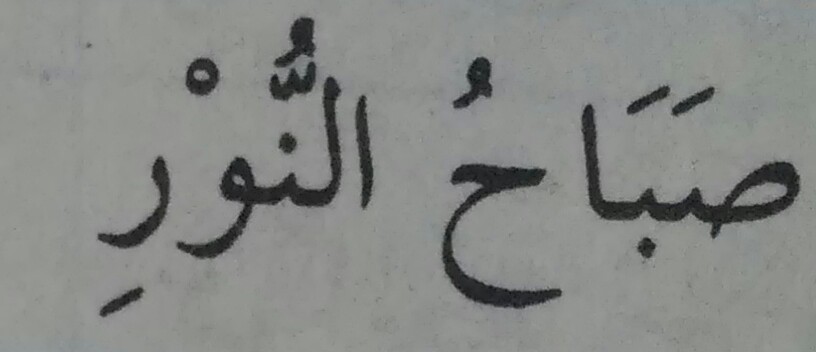 صَبَاحُ النُّوْرِ